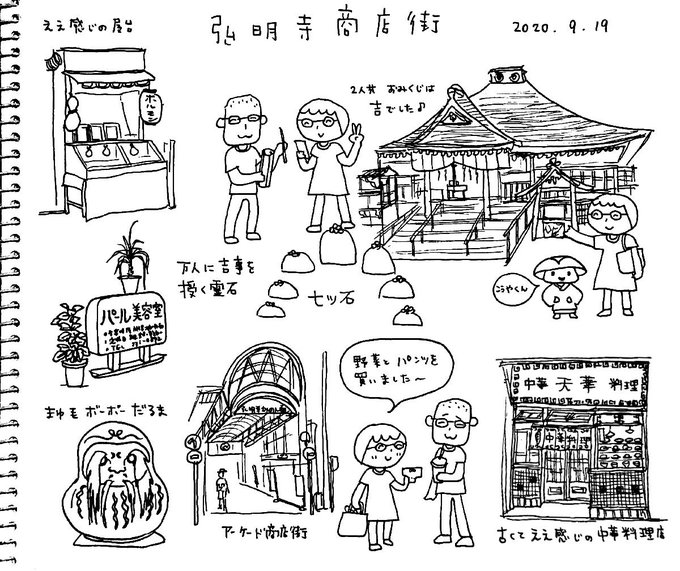 ええ感じの屋台
弘明寺商店街
2020. 9. 19
ボルモ
2人共 おみくじは
吉でした♪
万人に吉事を
授く霊石
七ツ石
こうやくん
パール美容室
まゆ毛ボーボーだるま
アーケード商店街
野菜と パンツを
買いました〜
中華 天華 料理
中華料理
古くてええ感じの中華料理店